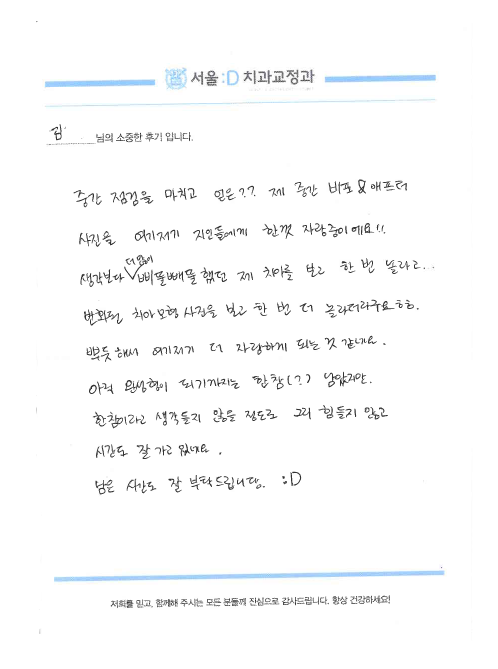 서울:D 치과교정과
김 님의 소중한 후기 입니다.
중간 점검을 마치고 얻은?? 제 중간 비포&애프터
사진을 여기저기 지인들에게 한껏 자랑중이에요!!
생각보다 더욱이 삐뚤빼뚤했던 제 치아를 보고 한 번 놀라고..
변화된 치아모형 사진을 보고 한 번 더 놀라더라구요ㅎㅎ.
뿌듯해서 여기저기 더 자랑하게 되는것 같네요.
아직 완성형이 되기까지는 한참(?) 남았지만.
한참이라고 생각들지 않을 정도로 그리 힘들지 않고
시간도 잘 가고 있네요.
남은 시간도 잘 부탁드립니당. :D
저희를 믿고, 함께해 주시는 모든 분들께 진심으로 감사드립니다. 항상 건강하세요!